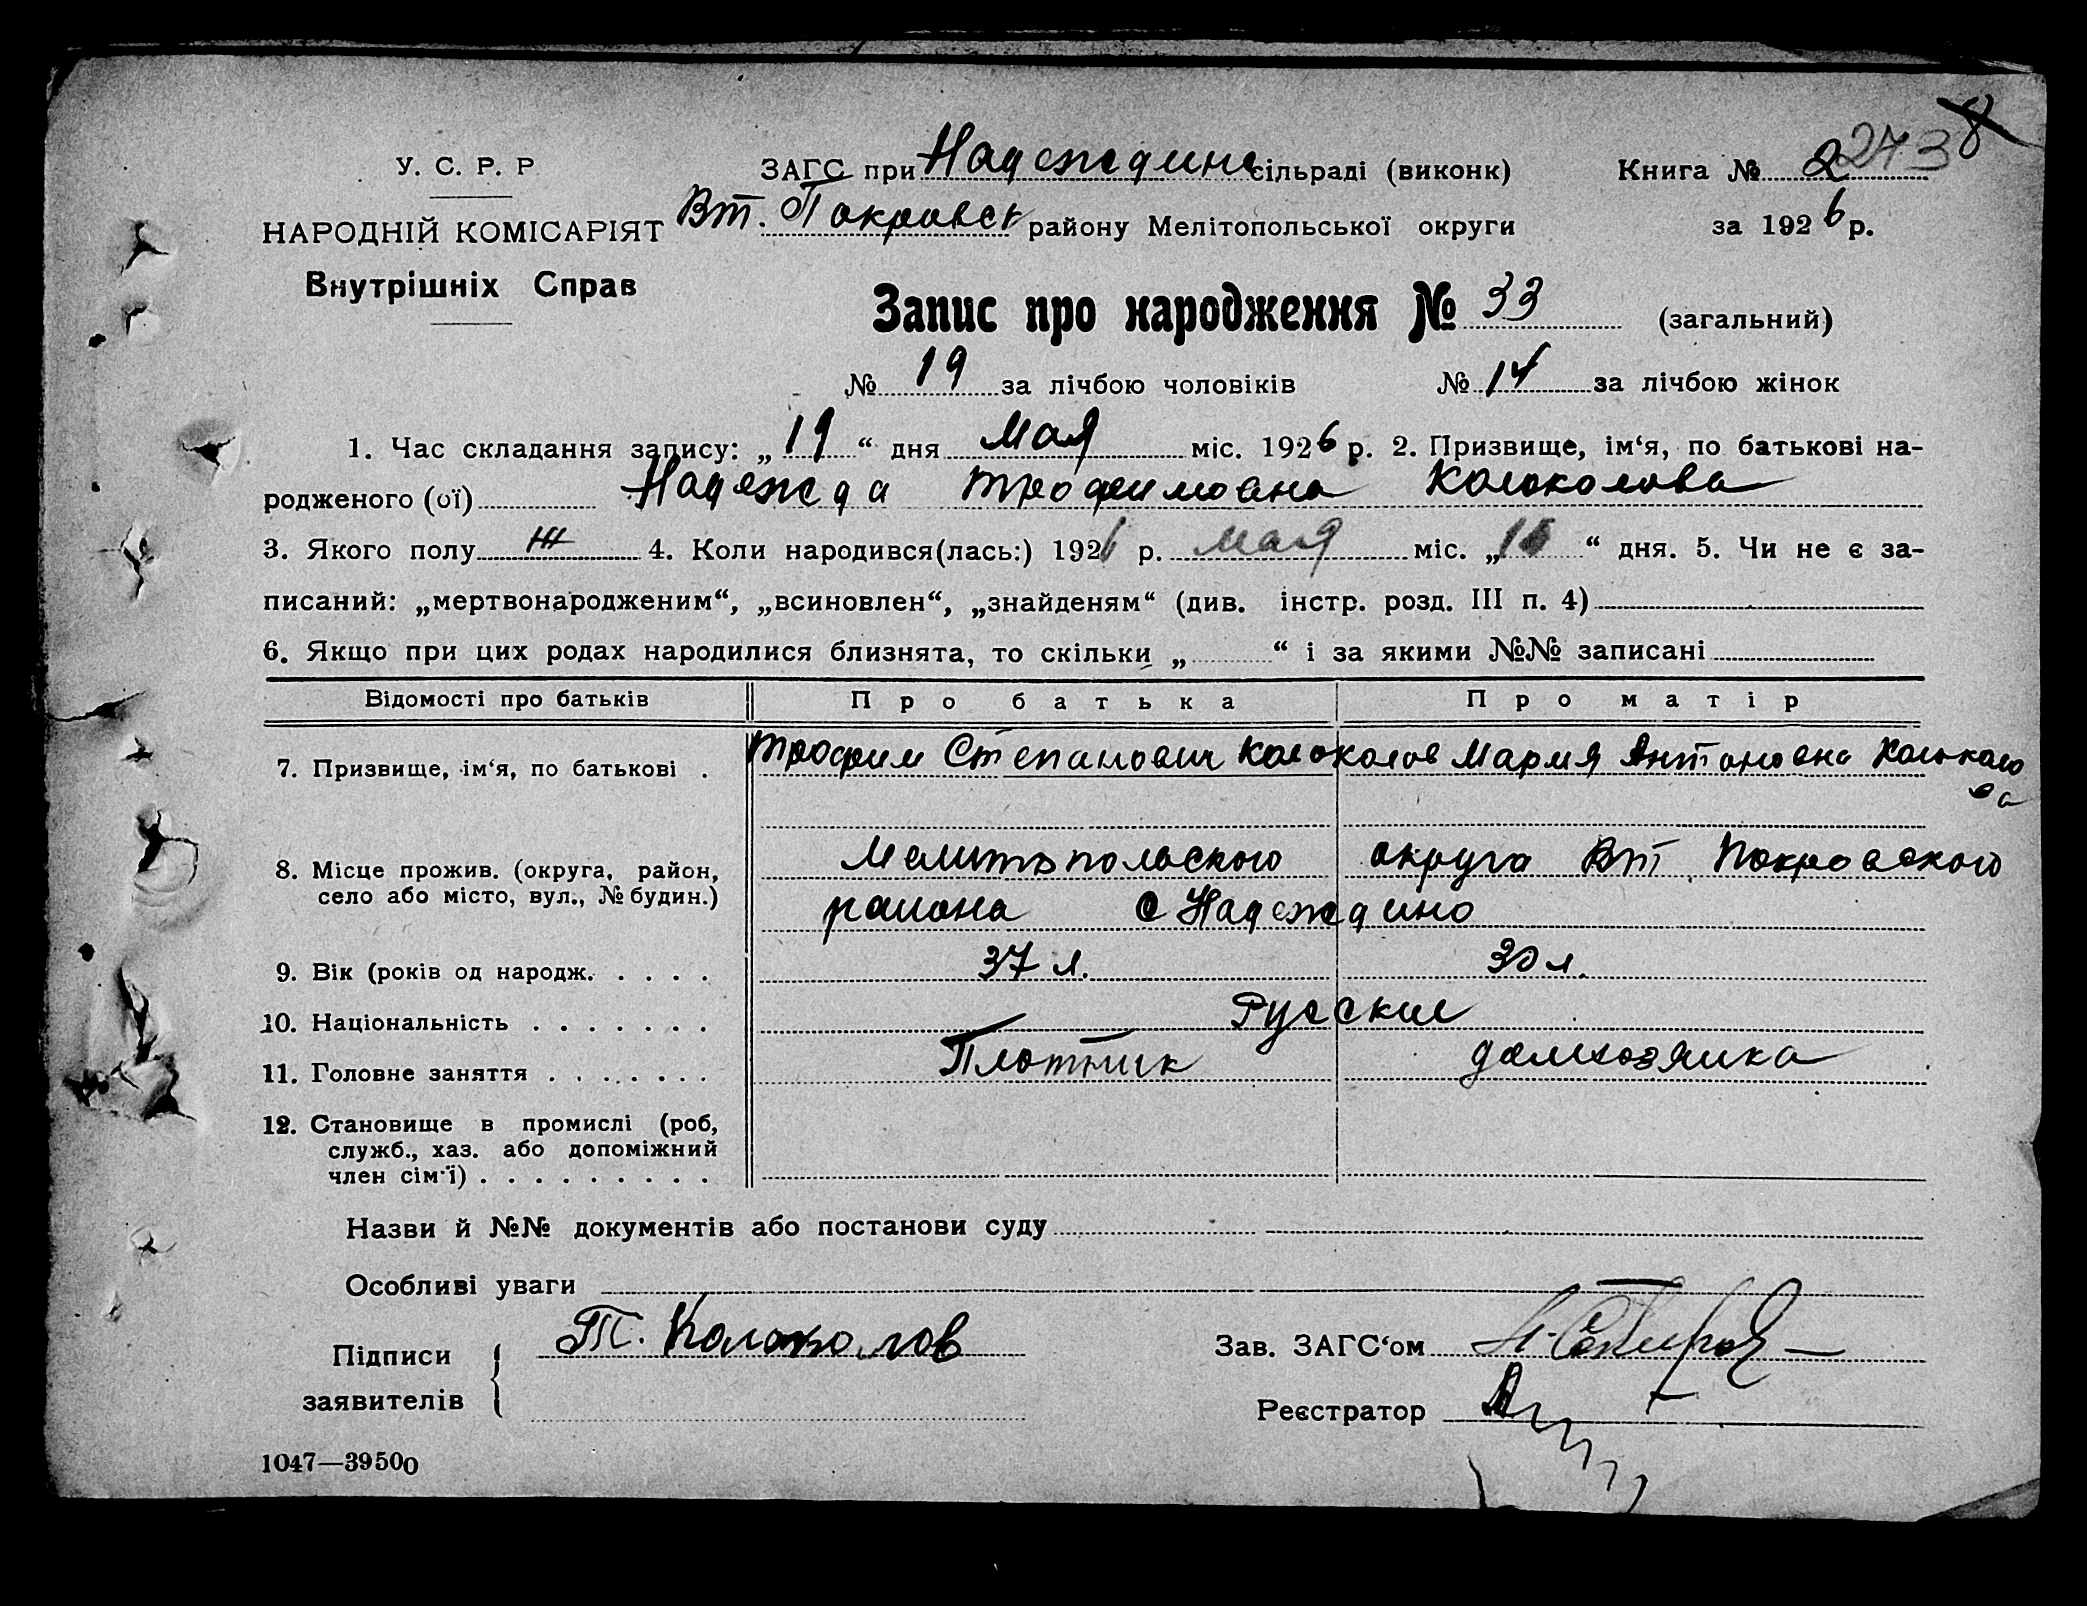 У. С. Р. Р
НАРОДНІЙ КОМІСАРІЯТ
Внутрішніх Справ
ЗАГС при Надеждинс сільраді (виконк)
Вт. Покровск району Мелітопольської округи
Книга № 2 273 8
за 1926 р.
Запис про народження № 33 (загальний)
№ 19 за лічбою чоловіків № 14 за лічбою жінок
1. Час складання запису: „19“ дня мая міс. 1926 р. 2. Призвище, ім‘я, по батькові на-
родженого (ої) Надежда Трофимовна Колоколова
3. Якого полу ж 4. Коли народився(лась:) 1926 р. мая міс. „ “ дня. 5. Чи не є за-
писаний: „мертвонародженим“, „всиновлен“, „знайденям“ (див. інстр. розд. III п. 4)
6. Якщо при цих родах народилися близнята, то скільки „ “ і за якими №№ записані
Відомості про батьків Про батька Про матір
7. Призвище, ім‘я, по батькові . Трофим Степанович Колоколов Мария Антоновна Колоколо
ва
8. Місце прожив. (округа, район, Мелитопольского округа Вт. Покровского
село або місто, вул., № будин.) района с Надеждино
9. Вік (років од народж. . . . . 37 л. 30 л.
10. Національність . . . . . . . Русские
11. Головне заняття . . . . . . . Плотник домхозяика
12. Становище в промислі (роб,
служб., хаз. або допоміжний
член сім‘ї) . . . . . . . . .
Назви й №№ документів або постанови суду
Особливі уваги
Підписи
заявителів
Т. Колоколов
Зав. ЗАГС‘ом
Реєстратор
1047—39500